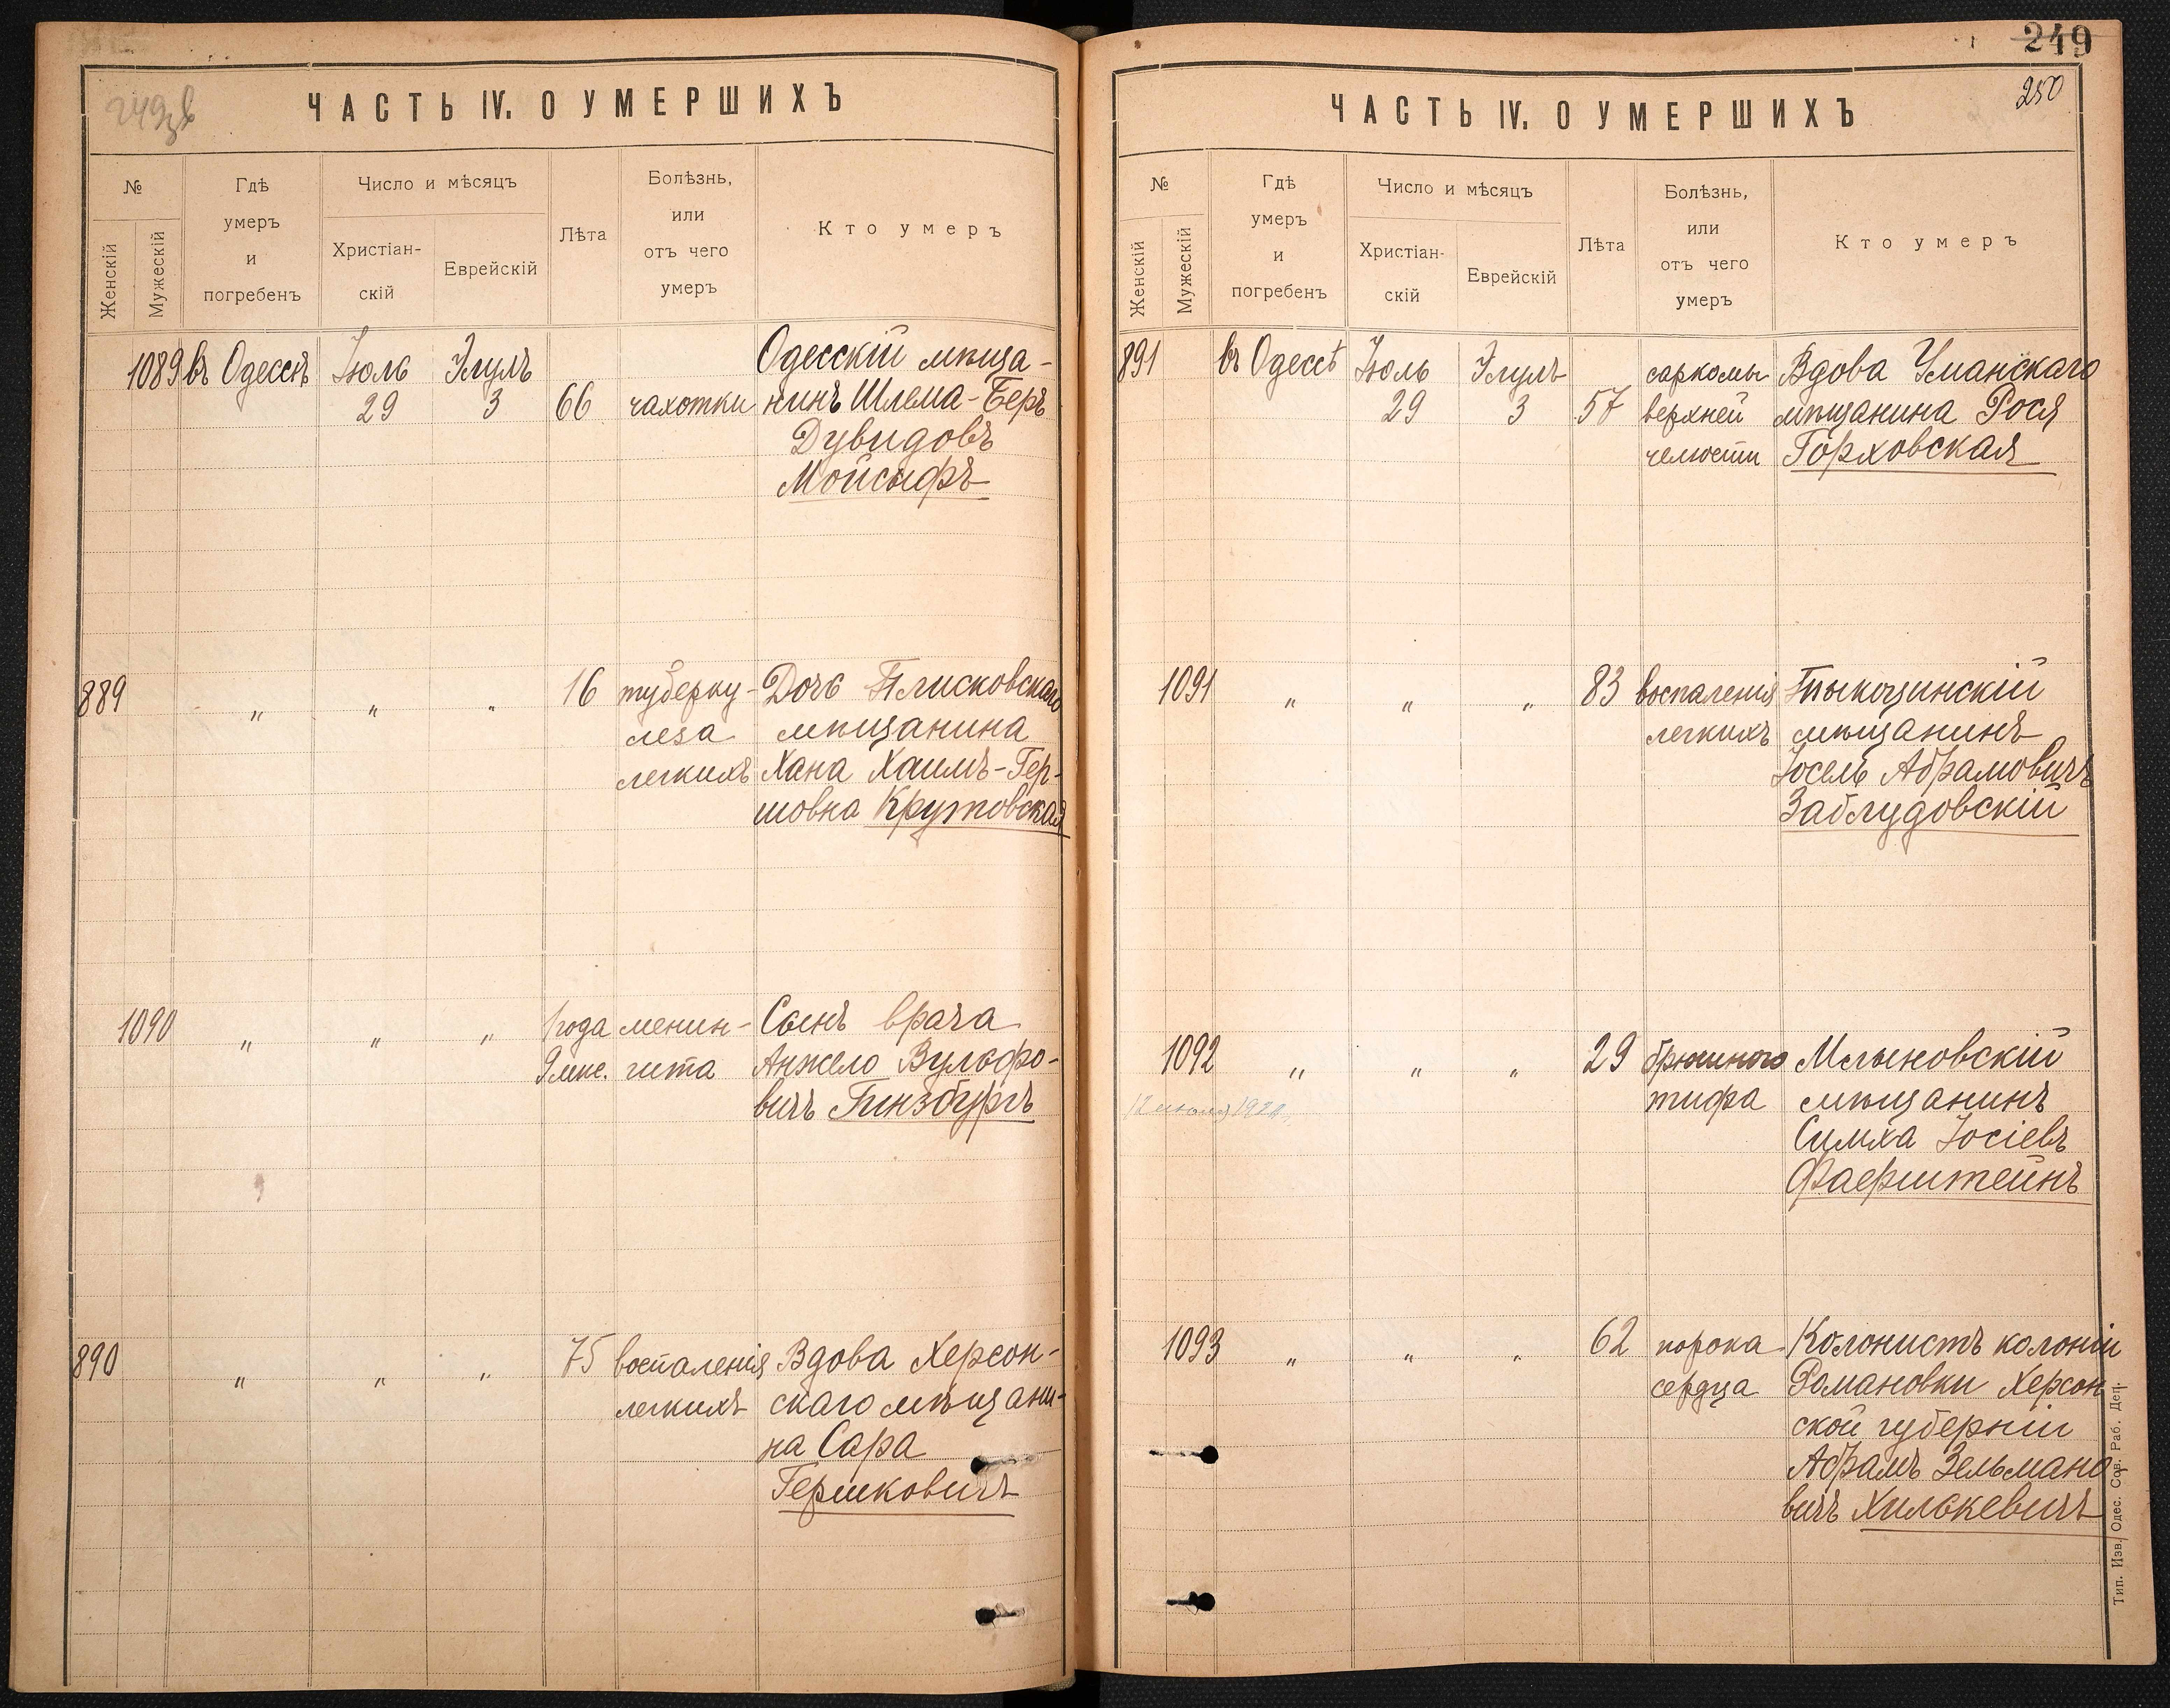 249зв
ЧАСТЬ IV. О УМЕРШИХЪ
№
Женскій
Мужескій
Гдѣ
умеръ
и
погребенъ
Число и мѣсяцъ
Христіан-
скій
Еврейскій
Лѣта
Болѣзнь,
или
отъ чего
умеръ
Кто умеръ
1089 въ Одессѣ Іюль Элулъ Одесскій мѣща-
29 3 66 чахотки нинъ Шлема-Беръ
Дувидовъ
Мойсыфъ
889 " " " 16 туберку- Дочь Плисковскаго
леза мѣщанина
легкихъ Хана Хаимъ-Гер-
шовна Крутовская
1090 " " " 1 года менин- Сынъ врача
9 мѣс. гита Анжело Вульфо-
вичъ Гинзбургъ
890 " " " 75 воспаленія Вдова Херсон-
легкихъ скаго мѣщани-
на Сара
Гершковичъ
249
250
ЧАСТЬ IV. О УМЕРШИХЪ
№
Женскій
Мужескій
Гдѣ
умеръ
и
погребенъ
Число и мѣсяцъ
Христіан-
скій
Еврейскій
Лѣта
Болѣзнь,
или
отъ чего
умеръ
Кто умеръ
891 въ Одессѣ Іюль Элулъ саркомы Вдова Уманскаго
29 3 57 верхней мѣщанина Рося
челюсти Горховская
1091 " " " 83 воспаленія Тыкоцинскій
легкихъ мѣщанинъ
Іосель Абрамовичъ
Заблудовскій
1092 " " " 29 брюшного Млыновскій
12 июля тифа мѣщанинъ
Симха Іосіевъ
Фаерштейнъ
1093 " " " 62 порока Колонистъ колоніи
сердца Романовки Херсон
ской губерніи
Абрамъ Зельмано
вичъ Хилькевичъ
Тип. Изв. Одес. Сов. Раб. Деп.